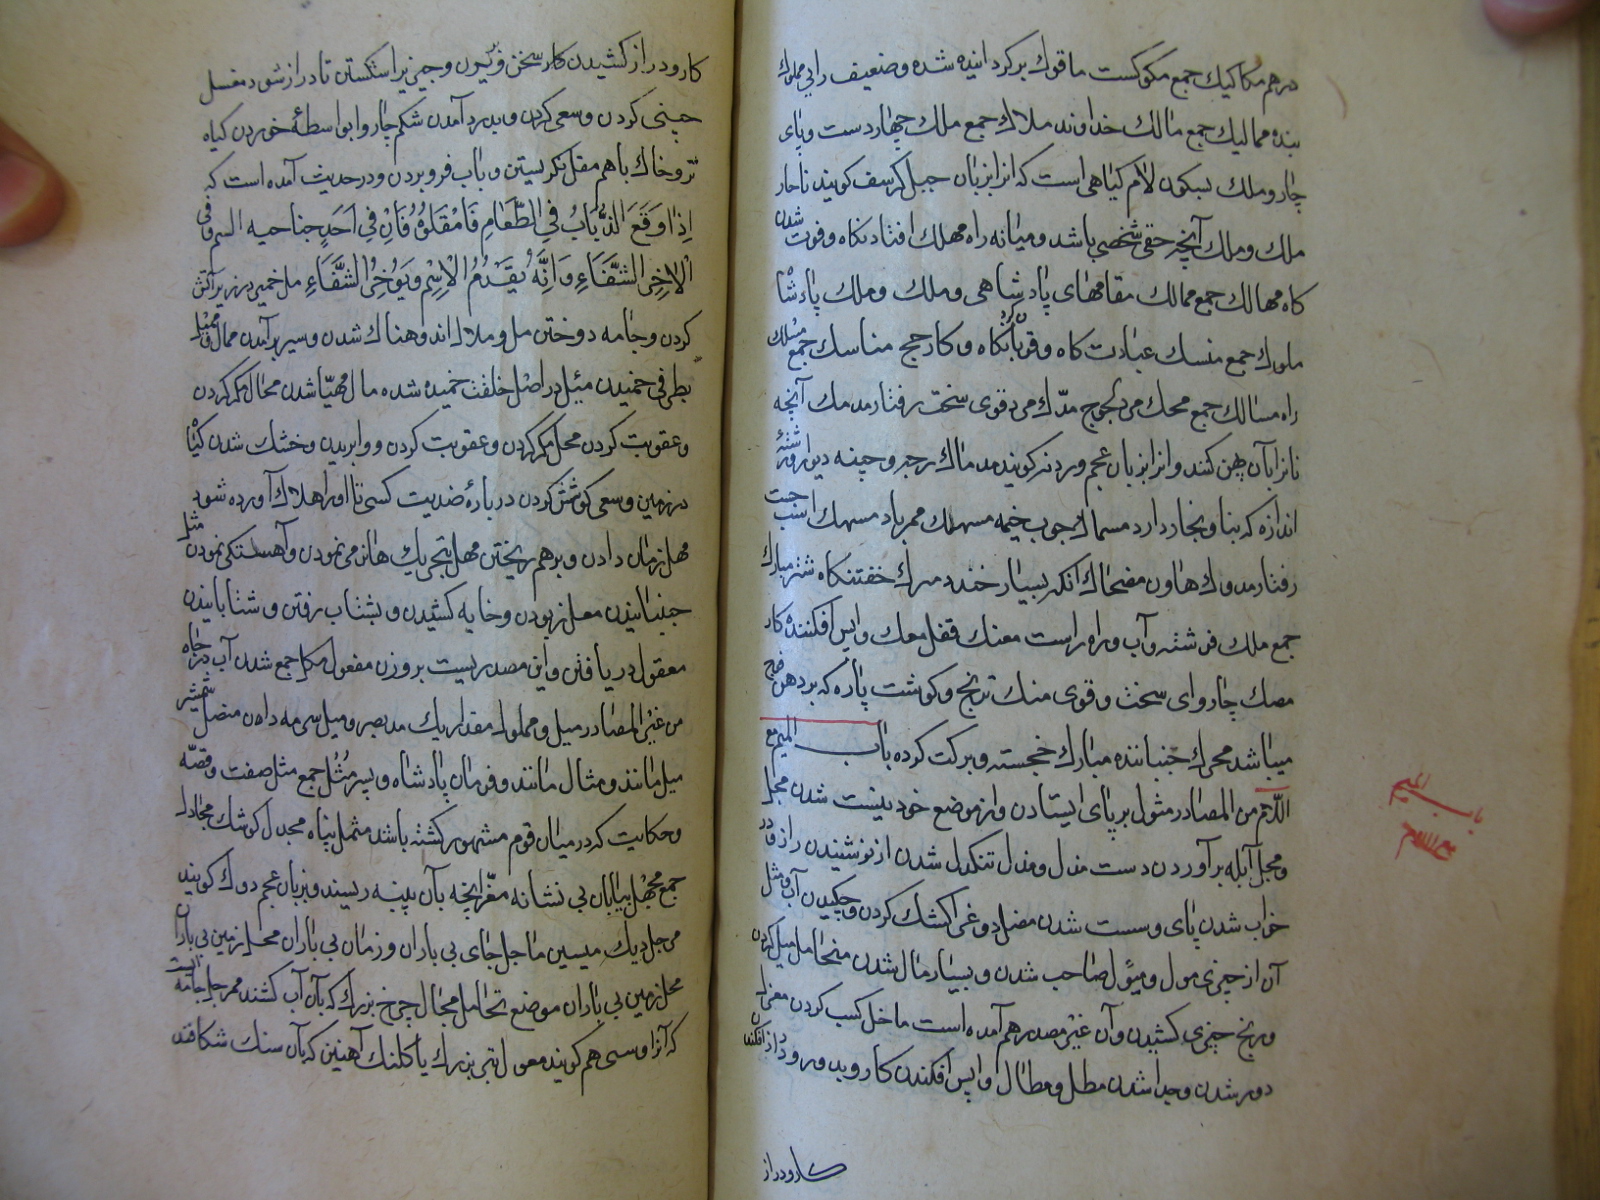 درهم مكاكيك جمع مكوكست ماقوك بركردانيده شده وضعيف رايى مملوك
بنده مماليك جمع مالك خداوند ملاك جمع ملك چهار دست وپاى
چاروملك بسكون لام كياهى است كه انرا بزبان جبل كرسف كويند ناچار
ملك وملك آنچه حقى شخصى باشد وميانه راه مهلك افتادنكاه وفوت شدن
كاه مهالك جمع ممالك مقامهاى پادشاهى وملك وملك پادشا
ملوك جمع منسك عبادت كاه وقربانكاه وكار حج مناسك جمع مسلك
راه مسالك جمع محك مرد لجوج مدك مرد قوى سخت رفتار مدمك آنچه
نانرا بآن پهن كنند وانرا بزبان عجم وردنه كويند مدماك رجه وچينه ديوار ورشته
اندازه كه بنا ونجار دارد مسماك چوب خيمه مسهك ممرباد مسهك اسب
رفتار مدوك هاون مضحاك انكه بسيار خندد مبرك خفتنكاه شتر مبارك
جمع ملك فرشته وآب وراه راست معنك قفل معك واپس افكننده كار
مصك چارواى سخت وقوى منك ترنج وكوشت پاره كه بر دهن فرج
ميباشد محرك جنباننده مبارك خجسته وبركت كرده باب الميم مع
اللام من المصادر مثول برپاى ايستادن واز موضع خود پست شدن مجل
ومجل آبله برآوردن دست مذل ومذل تنكدل شدن از پوشيدن راز وقدر
خواب شدن پاى وسست شدن مضل دوغ را كشك كردن وچكيدن آب ومثل
آن از چيزى مول وميول صاحب شدن وبسيار مال شدن متحامل ميل كردن
ورنج چيزى كشيدن وآن غير مصدر هم آمده است ماخل كسب كردن معزل
دور شدن وجدا شدن مطل ومطال واپس افكندن كار وبدور ودراز افكندن
كارودراز
باب الميم
مع اللام
كارودراز كشيدن كار سخن وچيزى براشكستن تا دراز شود مغسل
چينى كردن وسعى كردن وبدرد آمدن شكم چاروا بواسطه خوردن كياه
تروخاك باهم مقل نكريستن وباب فروبردن ودر حديث آمده است كه
اذا وقع الذباب فى الطعام فامقلوه فان فى احد جناحيه السم وفى
الاخر الشفاء وانه يقدم السم ويؤخر الشفاء مل خمير در زير آتش
كردن وجامه دوختن مل وملال اندوهناك شدن وسير برآمدن ممال وميل
بطرفى خميدن ميل در اصل خلقت خميده شده مال مهيا شدن محال مكر كردن
وعقوبت كردن محل مكر كردن وعقوبت كردن ووابريدن وخشك شدن كياه
در زمين وسعى كوشش كردن درباره ضديت كسى تا اورا هلاك آورده شود
مهل زمان دادن وبرهم ريختن مهل بتحريك هانرمى نمودن وآهستكى نمودن مثل
جنبانيدن معل ربودن وخايه كشيدن وبشتاب رفتن وشتابانيدن
معقول دريافتن واين مصدريست بر وزن مفعول مكل جمع شدن آب در چاه
من غير المصادر ميل ومملول مقدار يك مد بصر وميل سرمه دان منصل شمشير
ميل مانند ومثال مانند وفرمان پادشاه وپسر مثل جمع مثل صفت وقصه
وحكايت كه در ميان قوم مشهور كشته باشد مثمل پناه مجدل كوشك مجادل
جمع مجهل بيابان بى نشانه مغزل آنچه بآن پنبه ريسند وبزبان عجم دوك كويند
مرجل ديك ميسين ماحل جاى بى باران وزمان بى باران محل زمين بى باران
محل زمين بى باران موضع تحامل محال چرخ بزرك كه بآن آب كشند ممرجل جامه
كه آنرا وسى هم كويند معول تبر بزرك يا كلنك آهنين كه بآن سنك شكافند